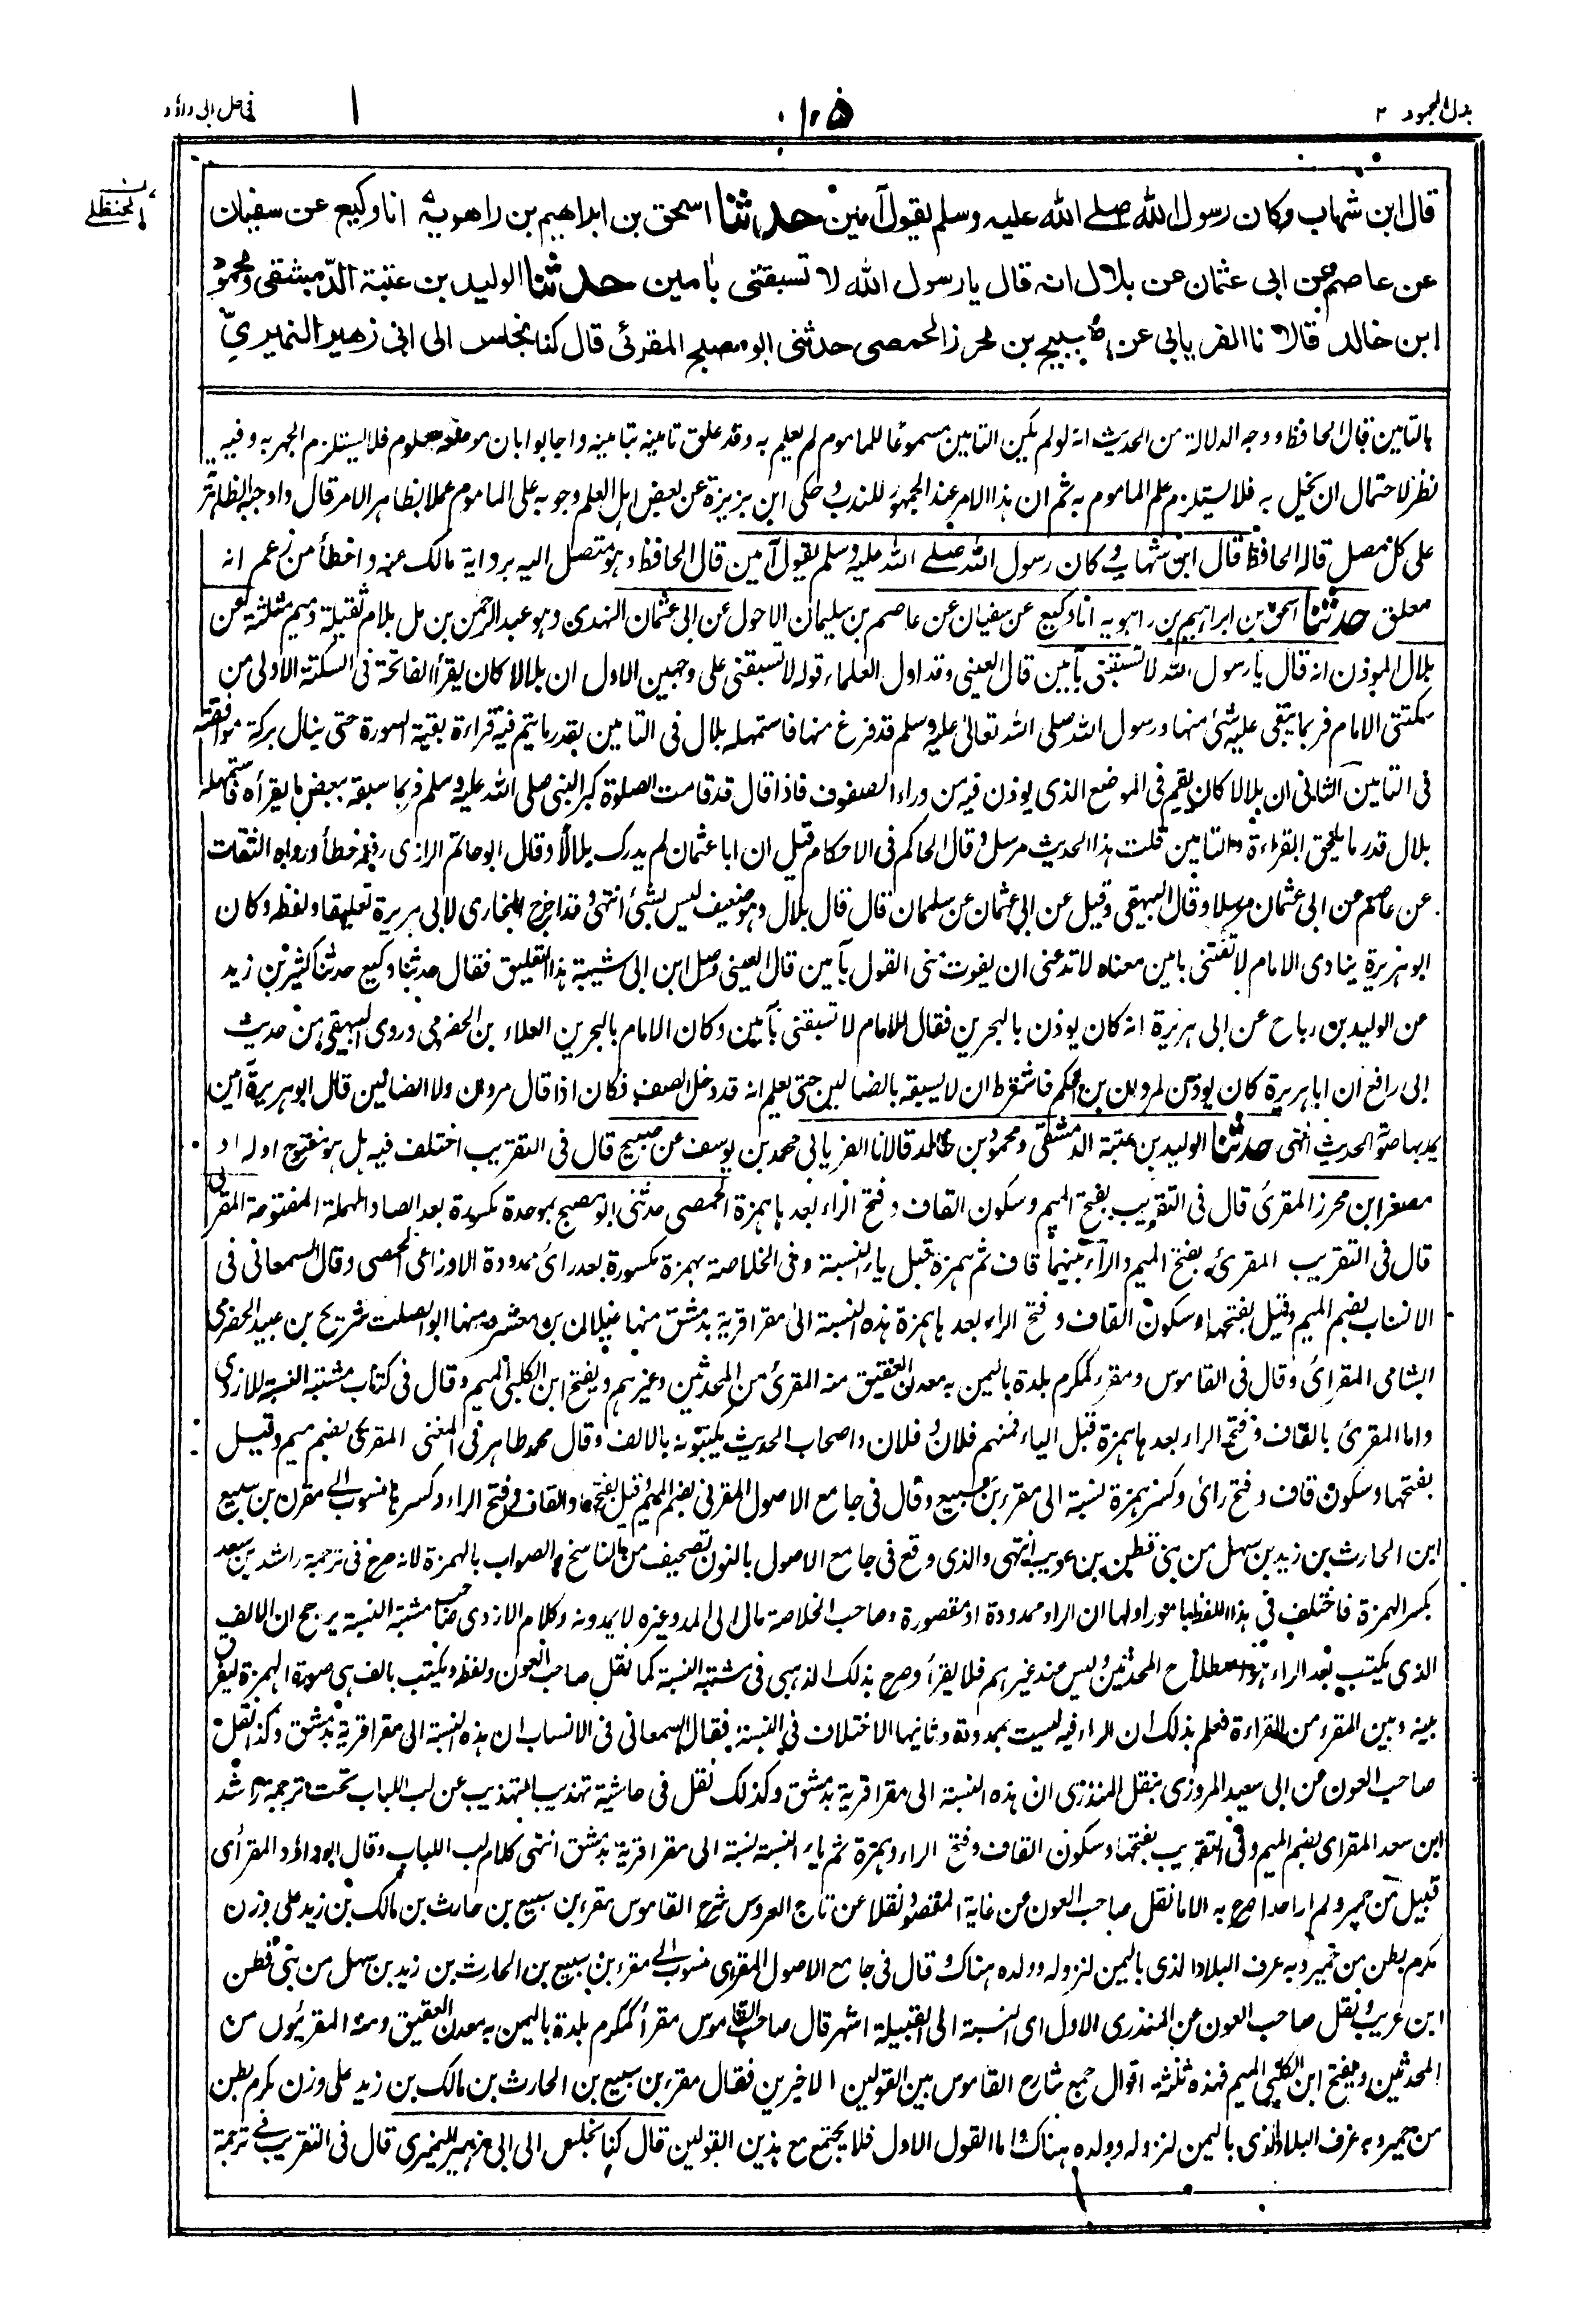 بذل المجهود ٢
١٠٥
١
في حل ابى داؤد
الحنظلي
قال ابن شهاب وكان رسول الله صلے الله عليه وسلم يقول آمين حدثنا اسحق بن ابراهيم بن راهويه انا وكيع عن سفيان
عن عاصم عن ابى عثمان عن بلال انه قال يا رسول الله لا تسبقنى بآمين حدثنا الوليد بن عتبة الدمشقى ومحمود
ابن خالد قالا نا الفريابى عن صبيح بن محرز الحمصى حدثنى ابو مصبح المقرئى قال كنا نجلس الى ابى زهير النميري
بالتأمين قال الحافظ ووجه الدلالة من الحديث انه لو لم يكن التامين مسموعًا للماموم لم يعلم به وقد علق تامينه بتامينه واجابوا بان موضعه معلوم فلا يستلزم الجهر به وفيه
نظر لاحتمال ان يخل به فلا يستلزم علم الماموم به ثم ان هذا الامر عند الجمهور للندب وحكى ابن بزيزة عن بعض اهل العلم وجوبه على الماموم عملا بظاهر الامر قال واوجبه الظاهرية
على كل مصل قاله الحافظ قال ابن شهاب وكان رسول الله صلے الله عليه وسلم يقول آمين قال الحافظ وهو متصل اليه برواية مالك عنه واخطأ من زعم انه
معلق حدثنا اسحق بن ابراهيم بن راهويه انا وكيع عن سفيان عن عاصم بن سليمان الاحول عن ابى عثمان النهدى وهو عبد الرحمن بن مل بلام ثقيلة وميم مثلثة عن
بلال الموذن انه قال يا رسول الله لا تسبقنى بآمين قال العينى وقد اول العلماء قوله لا تسبقنى على وجهين الاول ان بلالا كان يقرأ الفاتحة فى السكتة الاولى من
سكتتى الامام فربما يبقى عليه شئ منها ورسول الله صلى الله تعالىٰ عليه وسلم قد فرغ منها فاستمهله بلال فى التامين بقدر ما يتم فيه قراءة بقية السورة حتى ينال بركة موافقته
فى التامين الثانى ان بلالا كان يقيم فى الموضع الذى يوذن فيه من وراء الصفوف فاذا قال قد قامت الصلوة كبر النبى صلى الله عليه وسلم فربما سبقه ببعض ما يقرأه فاستمهله
بلال قدر ما يلحق القراءة والتامين قلت هذا الحديث مرسل وقال الحاكم فى الاحكام قيل ان ابا عثمان لم يدرك بلالا وقال ابو حاتم الرازى رفعه خطأ ورواه الثقات
عن عاصم عن ابى عثمان مرسلا وقال البيهقى وقيل عن ابى عثمان عن سلمان قال قال بلال وهو ضعيف ليس بشئ انتهى وقد اخرج البخارى لابى هريرة تعليقا ولفظه وكان
ابو هريرة ينادى الامام لا تفتنى بامين معناه لا تدعنى ان يفوت منى القول بآمين قال العينى وصل ابن ابى شيبة هذا التعليق فقال حدثنا وكيع حدثنا كثير بن زيد
عن الوليد بن رباح عن ابى هريرة انه كان يوذن بالبحرين فقال للامام لا تسبقنى بآمين وكان الامام بالبحرين العلاء بن الحضرمى وروى البيهقى من حديث
ابى رافع ان ابا هريرة كان يوذن لمروان بن الحكم فاشترط ان لا يسبقه بالضالين حتى يعلم انه قد دخل الصف فكان اذا قال مروان ولا الضالين قال ابو هريرة آمين
يمد بها صوته الحديث انتهى حدثنا الوليد بن عتبة الدمشقى ومحمود بن خالد قالا نا الفريابى محمد بن يوسف عن صبيح قال فى التقريب اختلف فيه هل هو مفتوح اوله او
مصغر ابن محرز المقرئ قال فى التقريب بفتح الميم وسكون القاف وفتح الراء بعدها همزة الحمصى حدثنى ابو مصبح بموحدة مكسورة بعد الصاد المهملة المفتوحة المقرائى
قال فى التقريب المقرئى بفتح الميم والراء بينهما قاف ثم همزة قبل ياء النسبة وفى الخلاصة بهمزة مكسورة بعد رائ ممدودة الاوزاعى الحمصى وقال السمعانى فى
الانساب بضم الميم وقيل بفتحها وسكون القاف وفتح الراء بعدها همزة هذه النسبة الى مقرا قرية بدمشق منها غيلان بن معشر ومنها ابو الصلت شريح بن عبيد الحضرمى
الشامى المقرائى وقال فى القاموس ومقرء كمكرم بلدة باليمن به معدن العقيق منه المقرئ من المحدثين وغيرهم ويفتح ابن الكلبى الميم وقال فى كتاب مشتبه النسبة للازدى
واما المقرئ بالقاف وفتح الراء بعدها همزة قبل الياء فمنهم فلان وفلان واصحاب الحديث يكتبونه بالالف وقال محمد طاهر فى المغنى المقرئى بضم ميم وقيل
بفتحها وسكون قاف وفتح رائ وكسر همزة نسبة الى مقرء بن سبيع وقال فى جامع الاصول المقرنى بضم الميم قيل بفتحها والقاف وفتح الراء وكسرها منسوب الے مقرن بن سبيع
ابن الحارث بن زيد بن سهل من بنى قطن بن عريب انتهى والذى وقع فى جامع الاصول بالنون تصحيف من الناسخ والصواب بالهمزة لانه صرح فى ترجمة راشد بن سعد
بكسر الهمزة فاختلف فى هذا اللفظ بامور اولها ان الراء ممدودة او مقصورة وصاحب الخلاصة مال الى المد وغيره لا يمدونه وكلام الازدى صاحب مشتبه النسبة يرجح ان الالف
الذى يكتب بعد الراء هو اصطلاح المحدثين وليس عند غيرهم فلا يقرأ وصرح بذلك الذهبى فى مشتبه النسبة كما نقل صاحب العون ولفظه ويكتب بالف هى صورة الهمزة ليفرق
بينه وبين المقرء من القراءة فعلم بذلك ان الراء فيه ليست بممدودة وثانيها الاختلاف فى النسبة فقال السمعانى فى الانساب ان هذه النسبة الى مقرا قرية بدمشق وكذا نقل
صاحب العون عن ابى سعيد المروزى بنقل المنذرى ان هذه النسبة الى مقرا قرية بدمشق وكذلك نقل فى حاشية تهذيب التهذيب عن لب اللباب تحت ترجمة راشد
ابن سعد المقراى بضم الميم وفى التقريب بفتحها وسكون القاف وفتح الراء وهمزة ثم ياء النسبة نسبة الى مقرا قرية بدمشق انتهى كلام لب اللباب وقال ابو داؤد المقرأى
قبيل من حمير ولم ار احدا صرح به الا ما نقل صاحب العون عن غاية المقصود نقلا عن تاج العروس شرح القاموس مقرء بن سبيع بن حارث بن مالك بن زيد على وزن
مكرم بطن من حمير وبه عرف البلاد الذى باليمن لنزوله وولده هناك وقال فى جامع الاصول المقرى منسوب الے مقرء بن سبيع بن الحارث بن زيد بن سهل من بنى قطن
ابن عريب ونقل صاحب العون عن المنذرى الاول اى النسبة الى القبيلة اشهر قال صاحب القاموس مقرأ كمكرم بلدة باليمن به معدن العقيق ومنه المقرئيون من
المحدثين ويفتح ابن الكلبى الميم فهذه ثلثة اقوال جمع شارح القاموس بين القولين الاخيرين فقال مقرء بن سبيع بن الحارث بن مالك بن زيد على وزن مكرم بطن
من حمير وبه عرف البلاد الذى باليمن لنزوله وولده هناك واما القول الاول فلا يجتمع مع هذين القولين قال كنا نجلس الى ابى زهير النميرى قال فى التقريب فے ترجمة